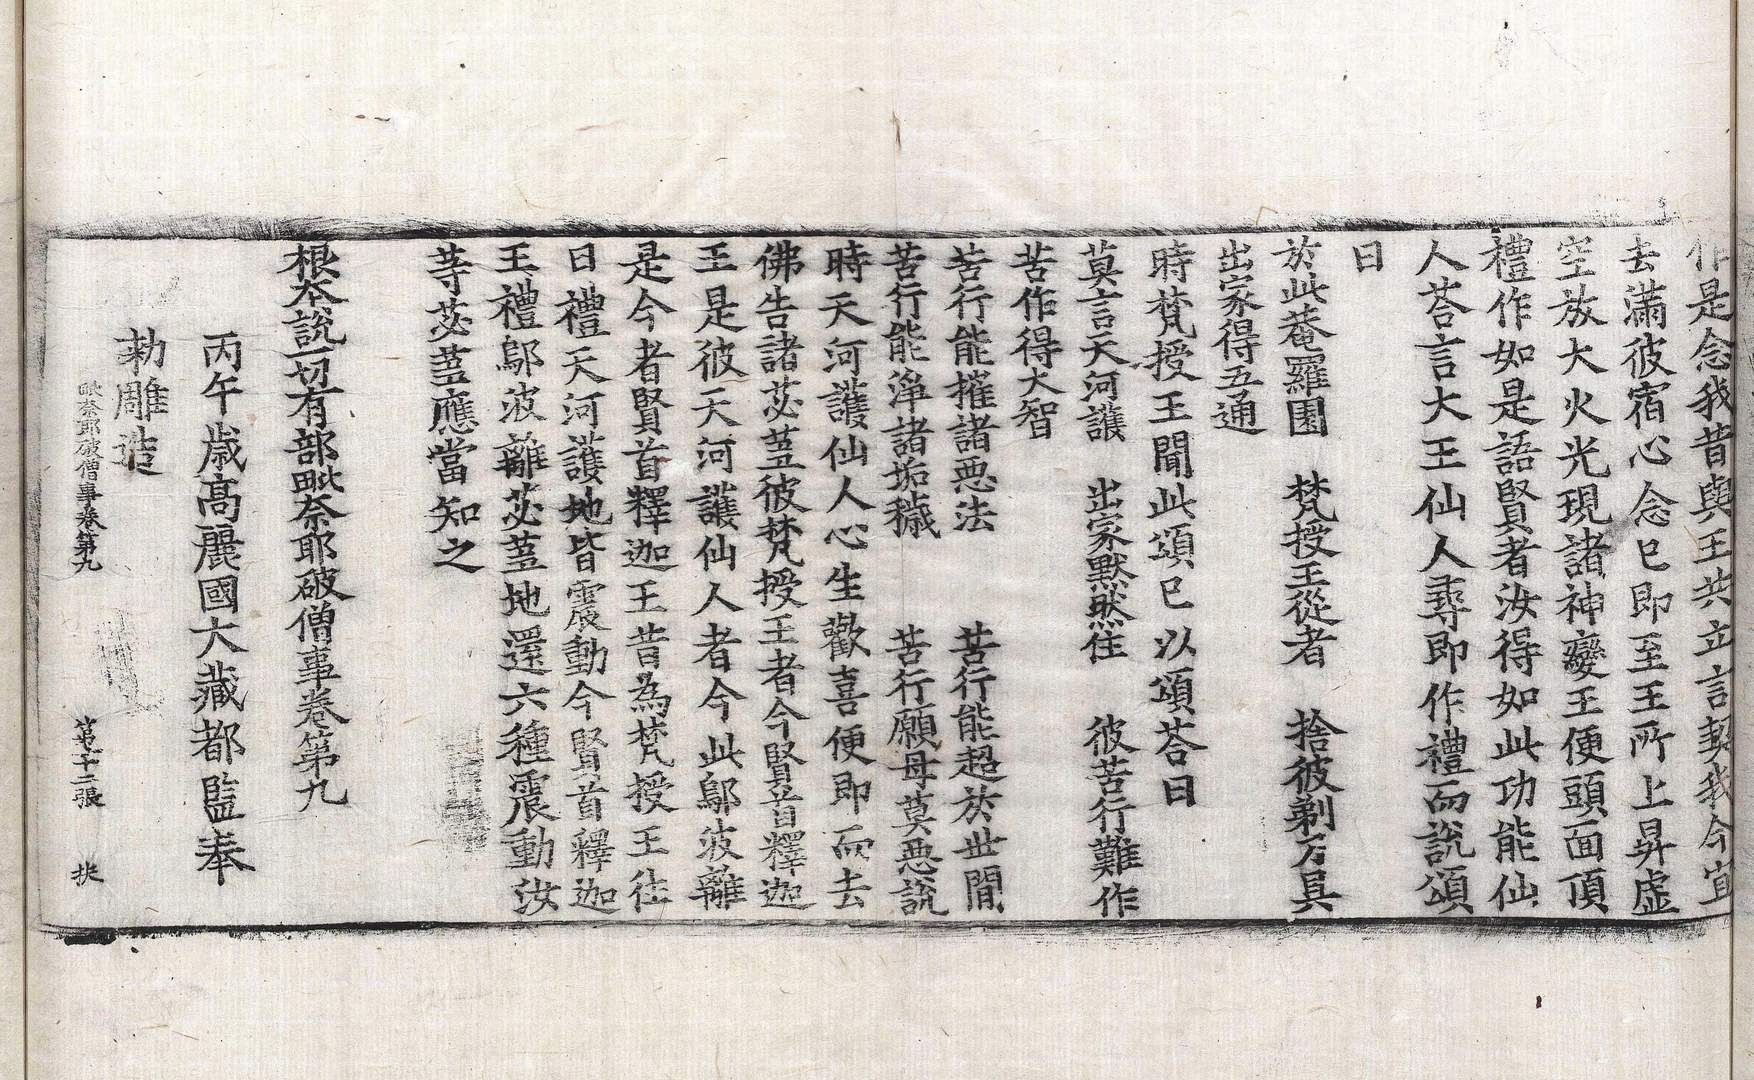 作是念我昔與王共立言契我今宜
去滿彼宿心念已即至王所上昇虛
空放大火光現諸神變王便頭面頂
禮作如是語賢者汝得如此功能仙
人荅言大王仙人尋即作禮而說頌
曰
於此菴羅園　梵授王從者　捨彼剃刀具
出家得五通
時梵授王聞此頌已以頌荅曰
莫言天河護　出家默然住　彼苦行難作
苦作得大智
苦行能摧諸惡法　苦行能超於世間
苦行能淨諸垢穢　苦行願母莫惡說
時天河護仙人心生歡喜便即而去
佛告諸苾蒭彼梵授王者今賢首釋迦
王是彼天河護仙人者今此鄔波離
是今者賢首釋迦王昔為梵授王往
日禮天河護地皆震動今賢首釋迦
王禮鄔波離苾蒭地還六種震動汝
等苾蒭應當知之
根本說一切有部毗奈耶破僧事卷第九
丙午歲高麗國大藏都監奉
勅雕造
毗奈耶破僧事卷第九　第十二張　扶